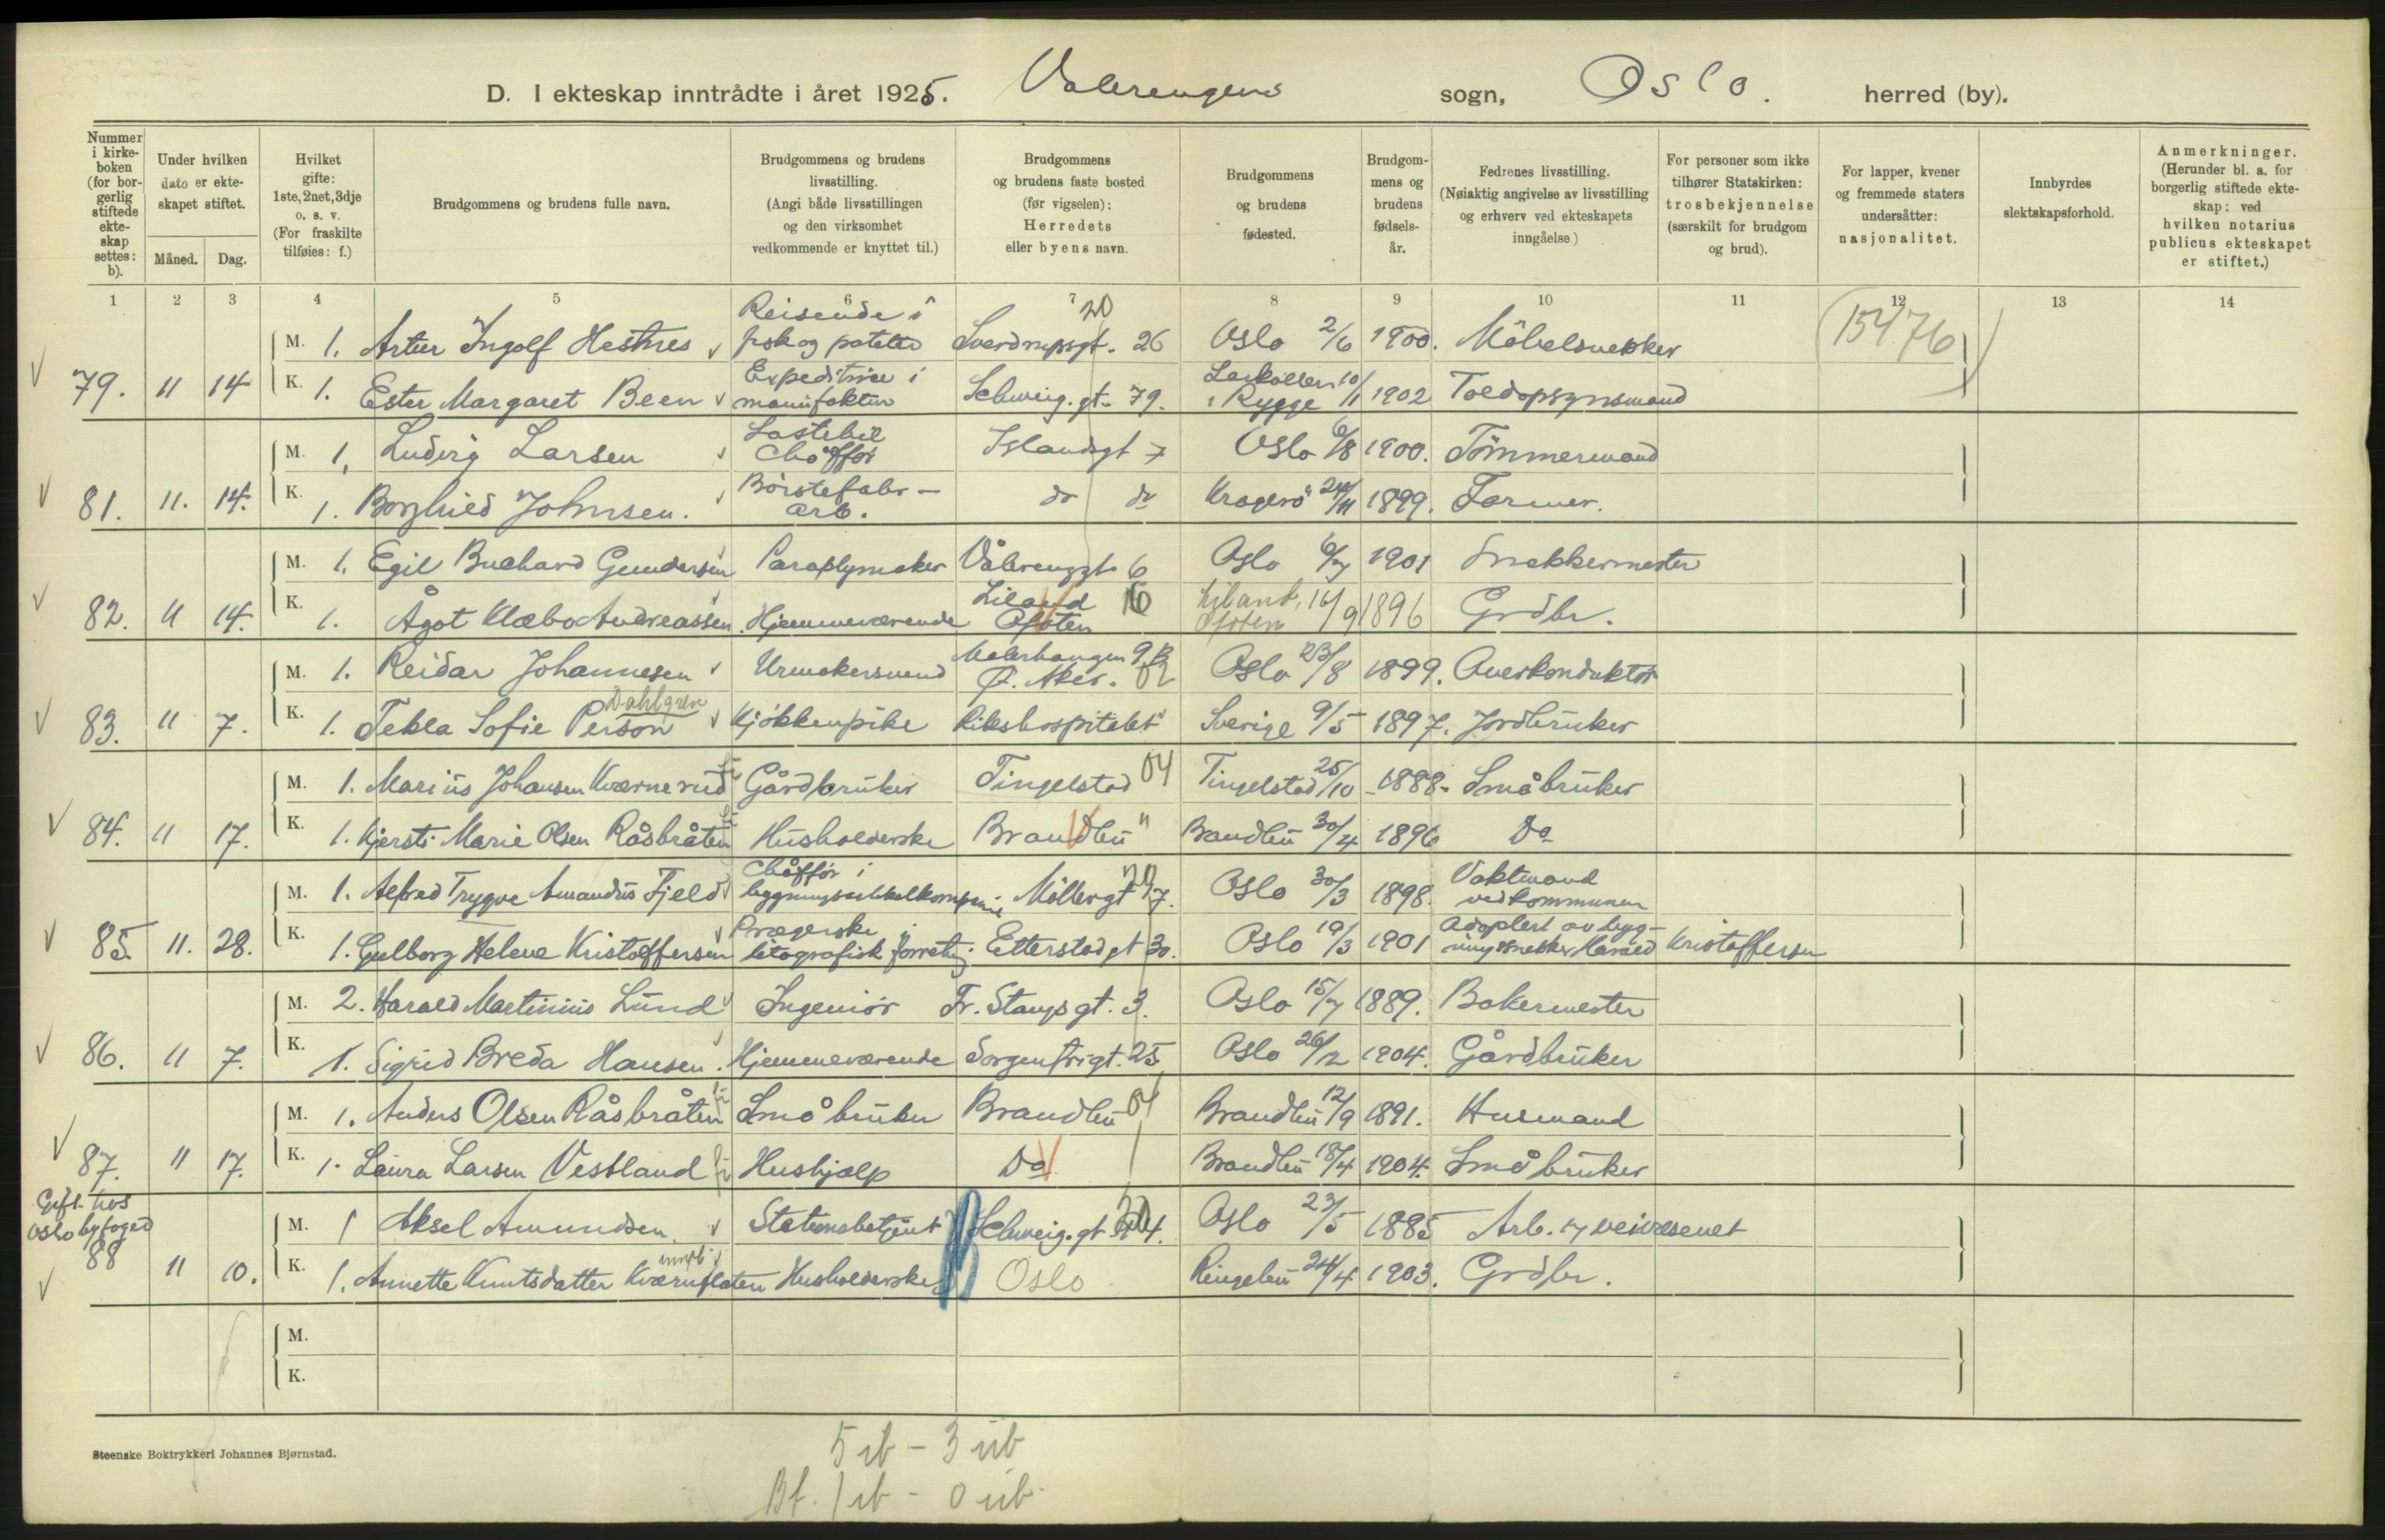 D. I ekteskap inntrådte i året 1925. Valerengens sogn, Oslo. herred (by).
Nummer i kirkeboken (for borgerlig stiftede ekteskap settes: b).
Under hvilken dato er ekteskapet stiftet.
Måned. Dag.
Hvilket gifte: 1ste, 2net, 3dje o. s. v. (For fraskilte tilføies: f.)
Brudgommens og brudens fulle navn.
Brudgommens og brudens livsstilling. (Angi både livsstillingen og den virksomhet vedkommende er knyttet til.)
Brudgommens og brudens faste bosted (før vigselen): Herredets eller byens navn.
Brudgommens og brudens fødested.
Brudgommens og brudens fødselsår.
Fedrenes livsstilling. (Nøiaktig angivelse av livsstilling og erhverv ved ekteskapets inngåelse.)
For personer som ikke tilhører Statskirken: trosbekjennelse (særskilt for brudgom og brud).
For lapper, kvener og fremmede staters undersåtter: nasjonalitet.
Innbyrdes slektskapsforhold.
Anmerkninger. (Herunder bl. a. for borgerlig stiftede ekteskap: ved hvilken notarius publicus ekteskapet er stiftet.)
1 2 3 4 5 6 7 8 9 10 11 12 13 14
M. 1. Artur Ingolf Hestnes Reisende i fisk og poteter Sverdrupsgt. 26 20 Oslo 2/6 1900. Möbelsnekker 15476
79. 11 14 K. 1. Ester Margaret Been Expeditrice i manufaktur Schweig.gt. 79. Larkollen i Rygge 10/1 1902 Toldopsynsmand
M. 1. Ludvig Larsen Lastebil Chåffør Islandsgt 7 Oslo 6/8 1900. Tömmermand
81. 11. 14. K. 1. Borghild Johnsen. Börstefabr- arb. do do Kragerö 24/11 1899. Farmer.
M. 1. Egil Buchard Gundersen Paraplymaker Vålerenggt 6 Oslo 6/7 1901 Snekkermester
82. 11 14. K. 1. Ågot Klæbo Andreassen. Hjemmeværende Liland Ofoten 16 Liland, Ofoten 16/9 1896 Grdbr.
M. 1. Reidar Johannesen Urmakersvend Malerhaugen 9B Ø. Aker. 02 Oslo 23/8 1899. Overkonduktör
83. 11 7. K. 1. Tekla Sofie Person Dahlgren Kjökkenpike Rikshospitalet Sverige 9/5 1897. Jordbruker
M. 1. Marius Johansen Kværnerud Gårdbruker Tingelstad 04 Tingelstad 25/10 1888. Småbruker
84. 11 17. K. 1. Kjersti Marie Olsen Råsbråten Husholderske Brandbu " Brandbu 30/4 1896 Do
M. 1. Alfred Trygve Amandus Fjeld Chåffør i bygningsartikelkompani Möllergt 17. 20 Oslo 30/3 1898. Vaktmand ved kommunen
85. 11. 28. K. 1. Gulborg Helene Kristoffersen Prægerske i litografisk forretng. Etterstadgt 30. Oslo 19/3 1901 Adoptert av bygningssnekker Harald Kristoffersen
M. 2. Harald Martinius Lund Ingeniör Fr. Stangsgt. 3. Oslo 15/7 1889. Bakermester
86. 11 7. K. 1. Sigrid Breda Hansen. Hjemmeværende Sorgenfrigt. 25 Oslo 26/12 1904. Gårdbruker
M. 1. Anders Olsen Råsbråten Småbruker Brandbu 04 Brandbu 12/9 1891. Husmand
87. 11 17. K. 1. Laura Larsen Vestland Hushjælp Do Brandbu 18/4 1904. Småbruker
Gift hos Oslo byfoged
M. 1 Aksel Amundsen. Stationsbetjent Schweig.gt Oslo 23/5 1885 Arb. v/ veivæsenet
88 11 10. K. 1. Annette Knutsdatter Kværnflaten Husholderske Oslo Ringebu 24/4 1903. Grdbr.
M.
K.
Steenske Boktrykkeri Johannes Bjørnstad.
5 ib - 3 uib
Bf. 1 ib - 0 uib.